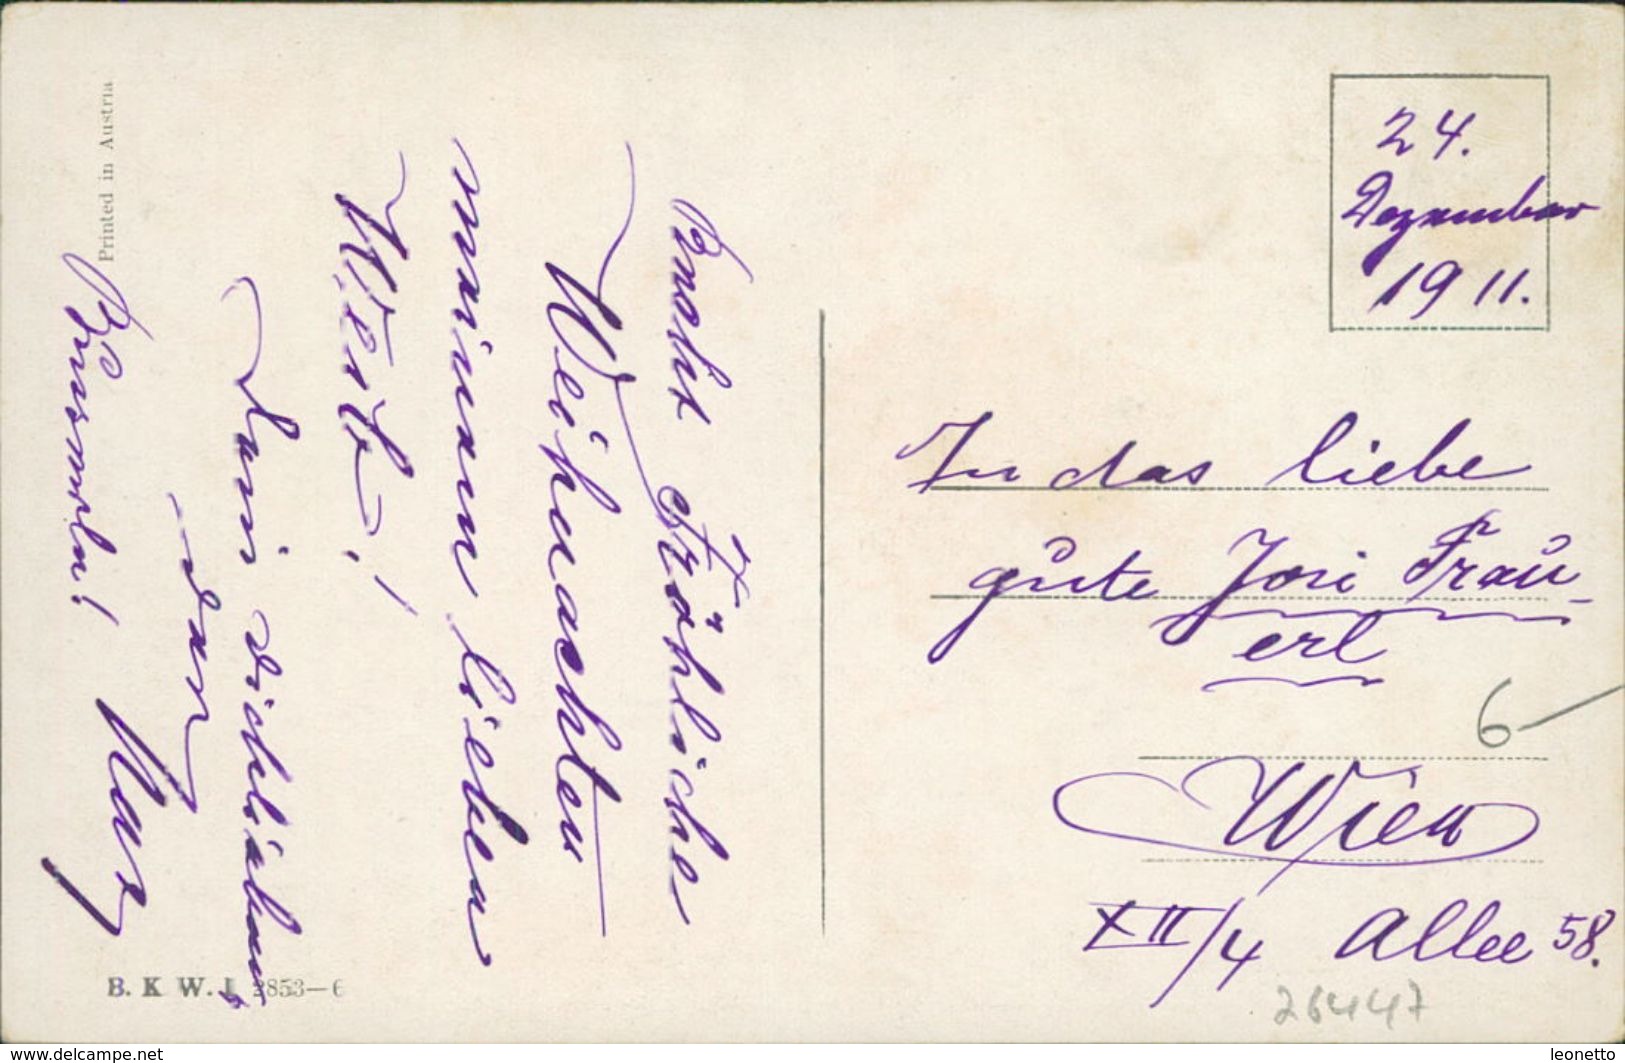 Printed in Austria
Recht Fröhliche
Weihnachten
meinem lieben
Weib!
Dein dich liebender
Max
B. K. W. I. 2853—6
24.
Dezember
1911.
An das liebe
gute Josi Frau-
erl
6—
Wien
XII/4 Allee 58.
26447
www.delcampe.net
leonetto